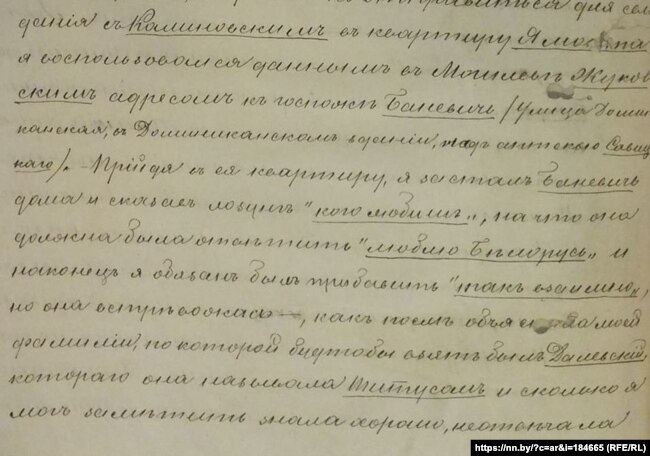 отправиться для сви
данія съ Калиновскимъ въ квартиру Ямонта
я воспользовался даннымъ въ Могилевѣ Жуков
скимъ адресомъ къ госпожѣ Баневичъ /Улица Домини
канская, въ Доминиканскомъ зданіи, надъ аптекою Савиц
каго/. – Прійдя въ ея квартиру, я засталъ Баневичъ
дома и сказавъ лозунгъ "кого любишъ", на что она
должна была отвѣтить "люблю Бѣлорусь" и
наконецъ я обязанъ былъ прибавить "такъ взаимно",
но она встрѣвожась, какъ послѣ моей
фамиліи, по которой будтобы взятъ былъ Далевскій,
котораго она называла Титусомъ и сколько я
могъ замѣтить знала хорошо,